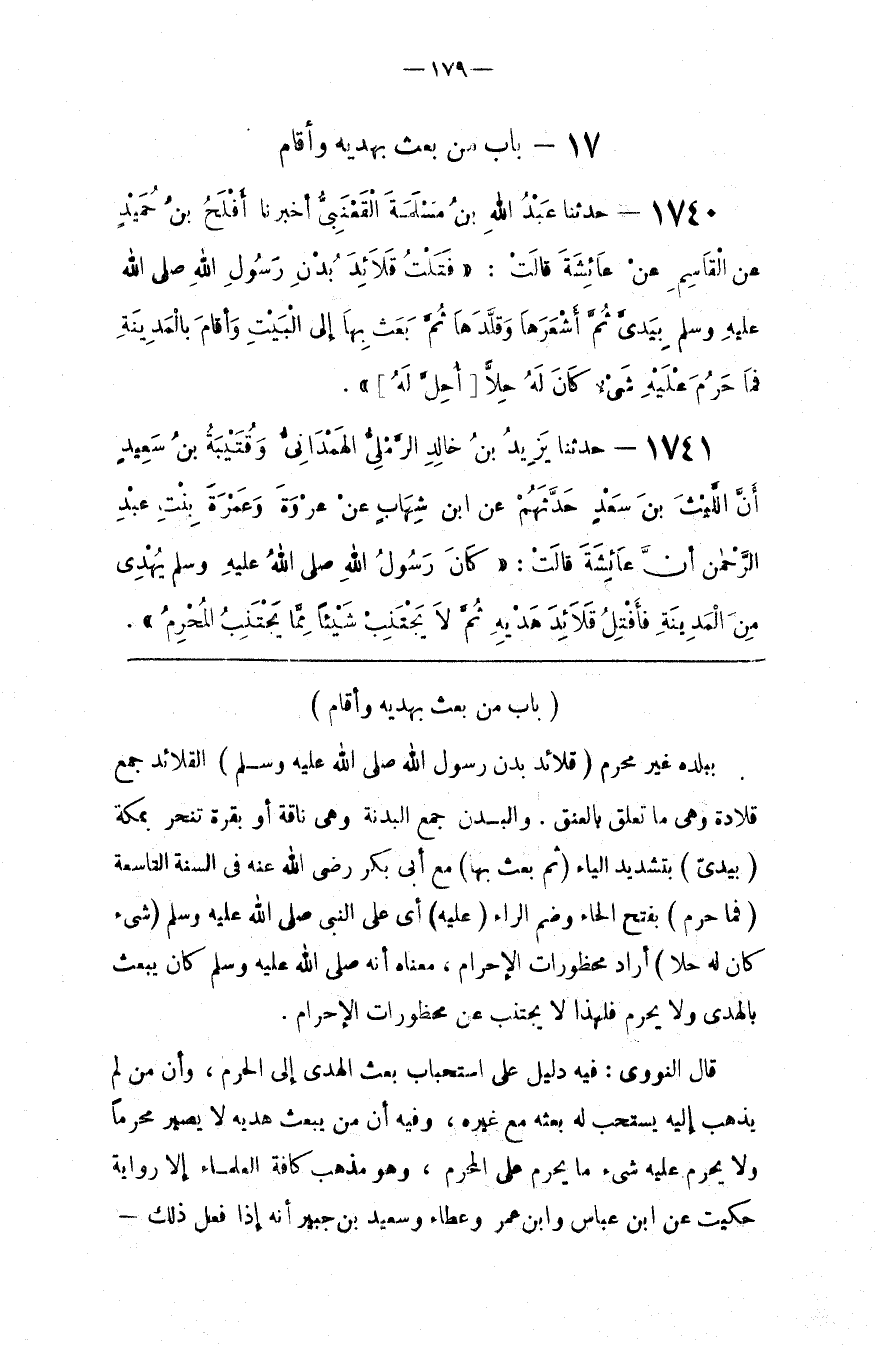 — ١٧٩ —
١٧ — باب من بعث بهديه وأقام
١٧٤٠ — حدثنا عَبْدُ اللهِ بنُ مَسْلَمَةَ الْقَعْنَبِىُّ أخبرنا أَفْلَحُ بنُ حُمَيْدٍ
عن الْقَاسِمِ عنْ عَائِشَةَ قالَتْ : « فَتَلْتُ قَلَائِدَ بُدْنِ رَسُولِ اللهِ صلى الله
عليهِ وسلم بِيَدَىَّ ثُمَّ أَشْعَرَهَا وَقَلَّدَهَا ثُمَّ بَعَثَ بِهَا إلى الْبَيْتِ وَأقامَ بالْمَدِينَةِ
فمَا حَرُمَ عَلَيْهِ شَىْءٌ كَانَ لَهُ حِلاًّ [ أُحِلَّ لَهُ ] » .
١٧٤١ — حدثنا يَزِيدُ بنُ خالِدِ الرَّمْلِىُّ الهَمْدَانِىُّ وَقُتَيْبَةُ بنُ سَعِيدٍ
أَنَّ اللَّيْثَ بنَ سَعْدٍ حَدَّثَهُمْ عن ابن شِهَابٍ عنْ عروَةَ وَعَمْرَةَ بِنْتِ عبْدِ
الرَّحْمٰنِ أنَّ عَائِشَةَ قالَتْ : « كَانَ رَسُولُ اللهِ صلى اللهُ عليهِ وسلم يُهْدِى
مِنَ الْمَدِينَةِ فأَفْتِلُ قَلَائِدَ هَدْيِهِ ثُمَّ لَا يَجْتَنِبُ شَيْئاً مِمَّا يَجْتَنِبُ المُحْرِمُ » .
( باب من بعث بهديه وأقام )
ببلده غير محرم ( قلائد بدن رسول الله صلى الله عليه وسلم ) القلائد جمع
قلادة وهى ما تعلق بالعنق . والبدن جمع البدنة وهى ناقة أو بقرة تنحر بمكة
( بيدىّ ) بتشديد الياء (ثم بعث بها) مع أبى بكر رضى الله عنه فى السنة التاسعة
( فما حرم ) بفتح الحاء وضم الراء ( عليه) أى على النبى صلى الله عليه وسلم (شىء
كان له حلا ) أراد محظورات الإحرام ، معناه أنه صلى الله عليه وسلم كان يبعث
بالهدى ولا يحرم فلهذا لا يجتنب عن محظورات الإحرام .
قال النووى : فيه دليل على استحباب بعث الهدى إلى الحرم ، وأن من لم
يذهب إليه يستحب له بعثه مع غيره ، وفيه أن من يبعث هديه لا يصير محرماً
ولا يحرم عليه شىء ما يحرم على المحرم ، وهو مذهب كافة العلماء إلا رواية
حكيت عن ابن عباس وابن عمر وعطاء وسعيد بن جبير أنه إذا فعل ذلك —